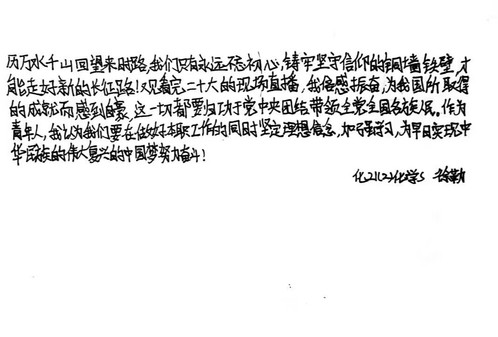 历万水千山回望来时路,我们只有永远不忘初心,铸牢坚守信仰的铜墙铁壁,才
能走好新的长征路!观看完二十大的现场直播,我倍感振奋,为我国所取得
的成就而感到自豪,这一切都要归功于党中央团结带领全党全国各族人民。作为
青年人,我认为我们要在做好本职工作的同时坚定理想信念,加强学习,为早日实现中
华民族的伟大复兴的中国梦努力奋斗!
化21(2)化学S